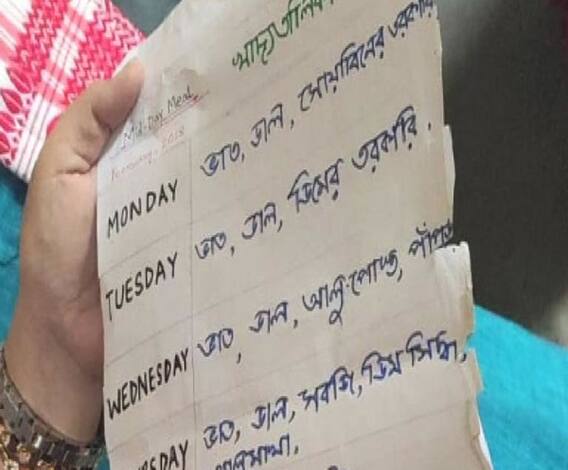 খাদ্যতালিকা
Mid-Day Meal
February, 2018
MONDAY ভাত, ডাল, সোয়াবিনের তরকারি
TUESDAY ভাত, ডাল, ডিমের তরকারি.
WEDNESDAY ভাত, ডাল, আলু-পোস্ত, পাঁপড়
ভাত, ডাল, সবজি, ডিম সিদ্ধ,
আলুমাখা.